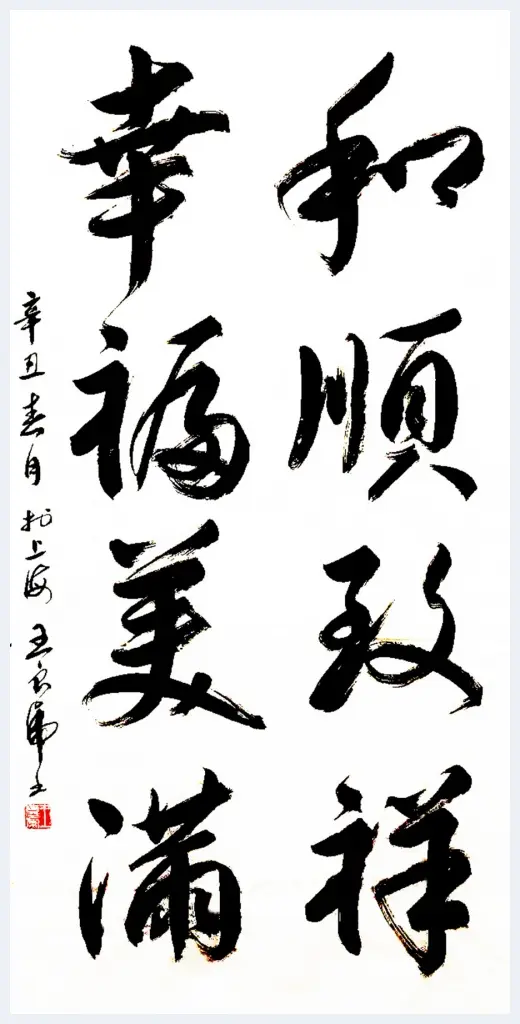 和順致祥
幸福美滿
辛丑春月於上海王